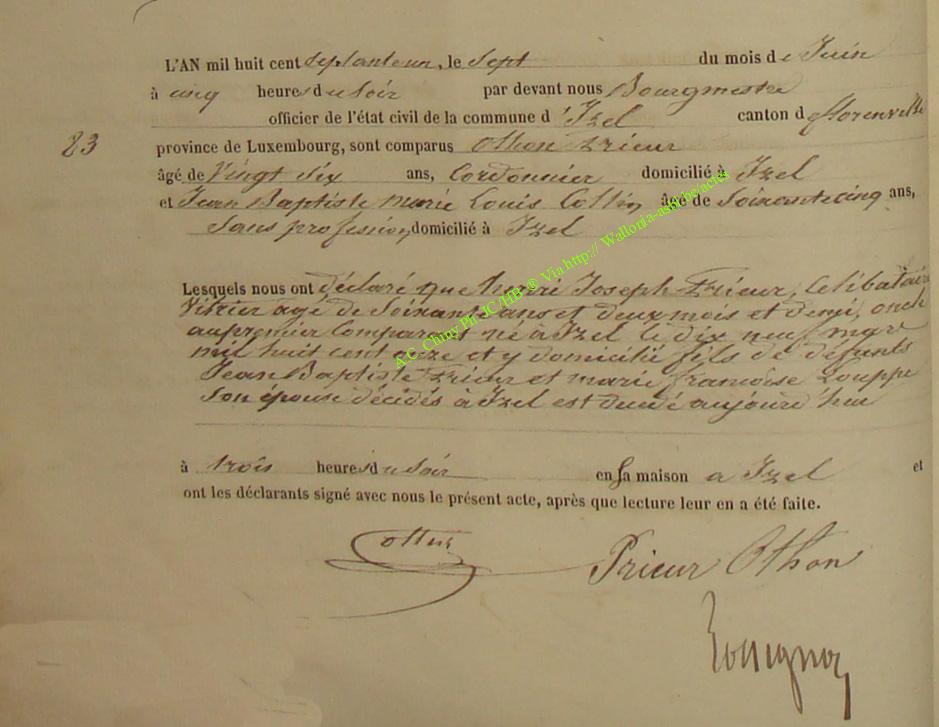 L'AN mil huit cent septante un, le Sept du mois de Juin
à cinq heures du Soir par devant nous Bourgmestre
officier de l'état civil de la commune d'Izel canton d florenville
23
province de Luxembourg, sont comparus Othon Prieur
âgé de Vingt Six ans, Cordonnier domicilié à Izel
et Jean Baptiste marie Louis Collin âgé de Soixante cinq ans,
Sans profession, domicilié à Izel
Lesquels nous ont déclaré que henri Joseph Prieur, Célibataire
Vitrier agé de Soixante ans et deux mois et demi, oncle
au premier Comparant né à Izel le dix neuf mars
mil huit cent onze et y domicilié fils de défunts
Jean Baptiste Prieur et marie francoise Pouppe
Son épouse décédés à Izel est décédé aujourd'hui
à trois heures du soir en sa maison a Izel et
ont les déclarants signé avec nous le présent acte, après que lecture leur en a été faite.
Collin
Prieur Othon
A.C. Chiny Ph JC/HB @ Via http:// Wallonia-asbl.be/actes